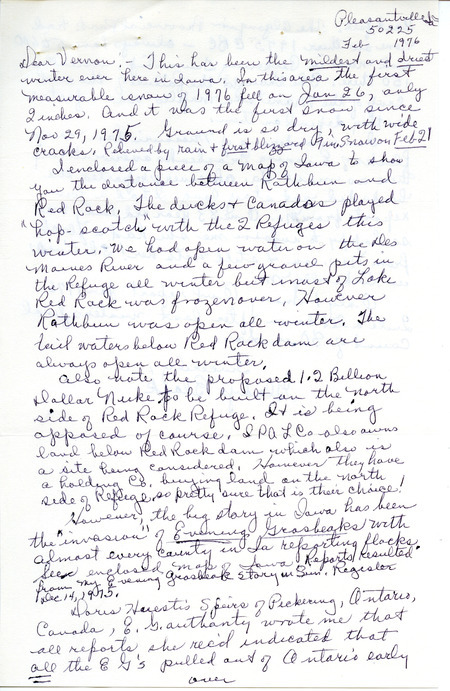 Pleasantville, Ia
50225
Feb 1976
Dear Vernon: - This has been the mildest and driest
winter ever here in Iowa. In this area the first
measurable snow of 1976 fell on Jan 26, only
2 inches. And it was the first snow since
Nov 29, 1975. Ground is so dry, with wide
cracks. Relieved by rain & first blizzard 9 in. Snow on Feb 21
I enclosed a piece of a map of Iowa to show
you the distance between Rathbun and
Red Rock. The ducks & Canadas played
"hop-scotch" with the 2 Refuges this
winter. We had open water on the Des
Moines River and a few gravel pits in
the Refuge all winter but most of Lake
Red Rock was frozen over. However
Rathbun was open all winter. The
tail waters below Red Rock dam are
always open all winter.
Also note the proposed 1.2 Billion
Dollar Nuke to be built on the north
side of Red Rock Refuge. It is being
opposed of course. I P & L Co also owns
land below Red Rock dam which also is
a site being considered. However they have
a holding Co. buying land on the north
side of Refuge, so pretty sure that is their choice!
However, the big story in Iowa has been
the "invasion" of Evening Grosbeaks with
almost every county in Ia reporting flocks.
See enclosed map of Iowa. Reports resulted
from my Evening Grosbeak story in Sun. Register
Dec 14, 1975.
Doris Huestis Speirs of Pickering, Ontario,
Canada, E. G. authority wrote me that
all reports she rec'd indicated that
all the E G's pulled out of Ontario early
over